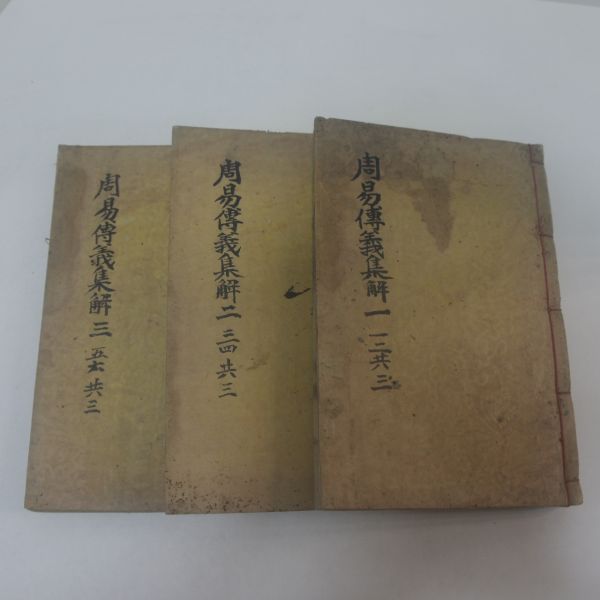 周易傳義集解 一 一二共三
周易傳義集解 二 三四共三
周易傳義集解 三 五六共三